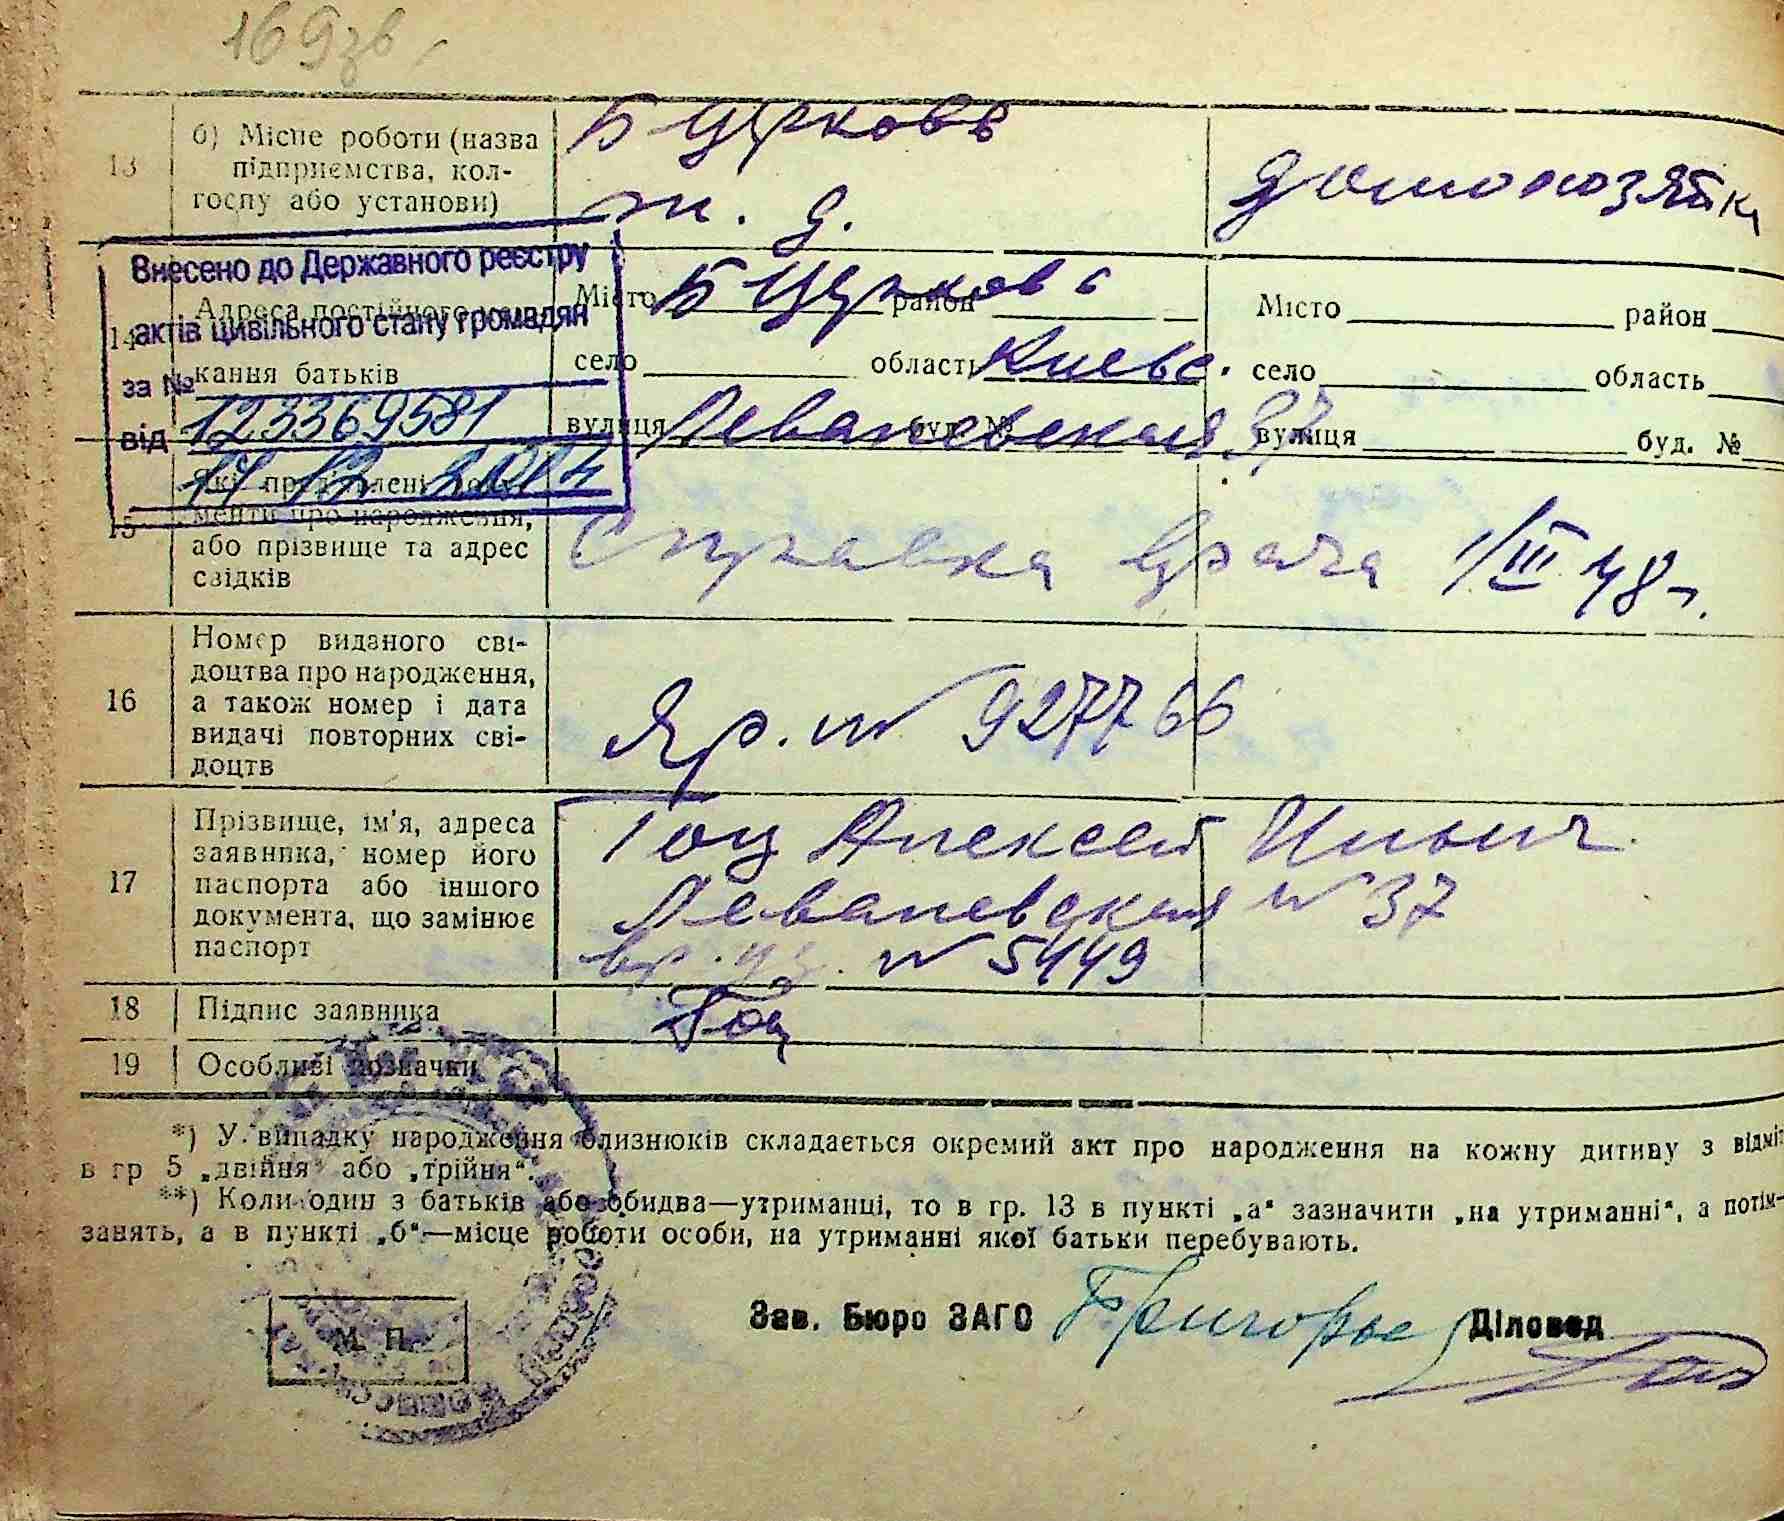 169зв
13
б) Місце роботи (назва
підприємства, кол-
госпу або установи)
Б Церковь
ж. д.
домохозяйка
Внесено до Державного реєстру
актів цивільного стану громадян
за № 123369581
від 17 12 2014
14
Адреса постійного
кання батьків
Місто Б Церковь район
село область Киевс.
вулиця Леваневская 37 буд. №
Місто район
село область
вулиця буд. №
15
менти про народження,
або прізвище та адрес
свідків
Справка врача 1/III 48 г.
16
Номер виданого сві-
доцтва про народження,
а також номер і дата
видачі повторних сві-
доцтв
Яр. № 927766
17
Прізвище, ім'я, адреса
заявника, номер його
паспорта або іншого
документа, що замінює
паспорт
Гоц Алексей Ильич
Леваневская № 37
вр. уд. № 5449
18 Підпис заявника
Гоц
19 Особливі позначки
*) У випадку народження близнюків складається окремий акт про народження на кожну дитину з відміт
в гр 5 „двійня“ або „трійня“.
**) Коли один з батьків або обидва—утриманці, то в гр. 13 в пункті „а“ зазначити „на утриманні“, а потім—
занять, а в пункті „б“—місце роботи особи, на утриманні якої батьки перебувають.
М. П.
Зав. Бюро ЗАГС
Діловод